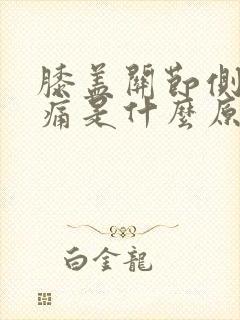 膝盖關節側
痛是什麼原
白金龍